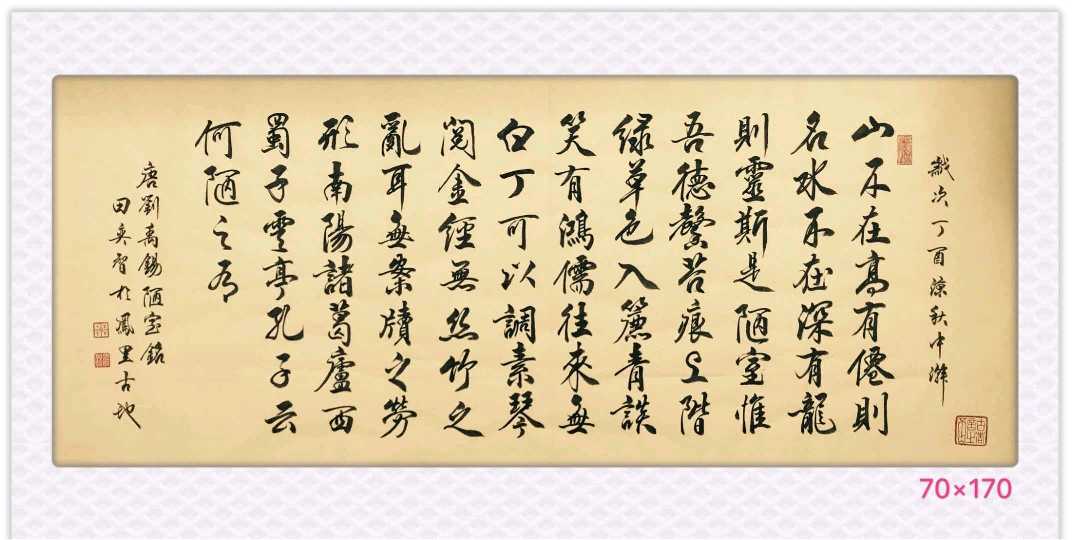 歲次丁酉涼秋中澣
山不在高有僊則
名水不在深有龍
則靈斯是陋室惟
吾德馨苔痕上階
緑草色入簾青談
笑有鴻儒往來無
白丁可以調素琴
閲金經無絲竹之
亂耳無案牘之勞
形南陽諸葛廬西
蜀子雲亭孔子云
何陋之有
唐劉禹錫陋室銘
田於鳳里古地
70×170